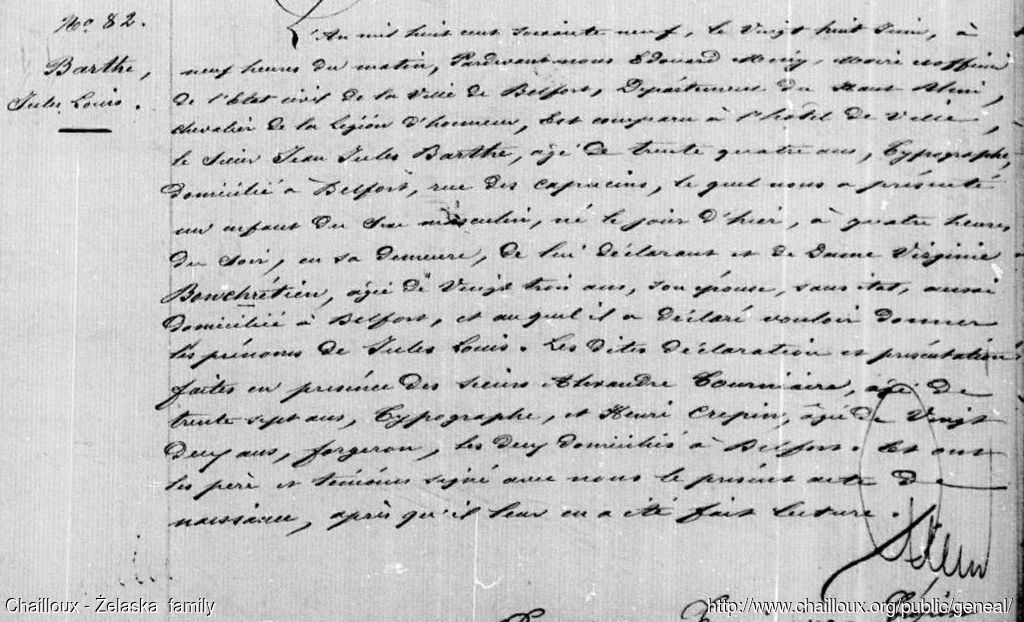 No 82.
Barthe,
Jules Louis.
L'An mil huit cent soixante neuf, le Vingt huit Juin, à
neuf heures du matin, Pardevant nous Edouard Mény, Maire et officier
de l'Etat civil de la Ville de Belfort, Département du Haut Rhin,
chevalier de la Légion d'honneur, Est comparu à l'hôtel de Ville,
le Sieur Jean Jules Barthe, âgé de trente quatre ans, Typographe,
domicilié à Belfort, rue des capucins, le quel nous a présenté
un enfant du Sexe masculin, né le jour d'hier, à quatre heures
du soir, en sa demeure, de lui déclarant et de Dame Virginie
Bonchrétien, âgée de Vingt trois ans, son épouse, sans état, aussi
domiciliée à Belfort, et au quel il a déclaré vouloir donner
les prénoms de Jules Louis. Les dites déclaration et présentation
faites en présence des sieurs Alexandre Tourniaire, âgé de
trente sept ans, Typographe, et Henri Crepin, âgé de Vingt
deux ans, forgeron, les deux domiciliés à Belfort. Et ont
les père et témoins signé avec nous le présent acte de
naissance, après qu'il leur en a été fait lecture.
Chailloux - Żelaska family
http://www.chailloux.org/public/geneal/